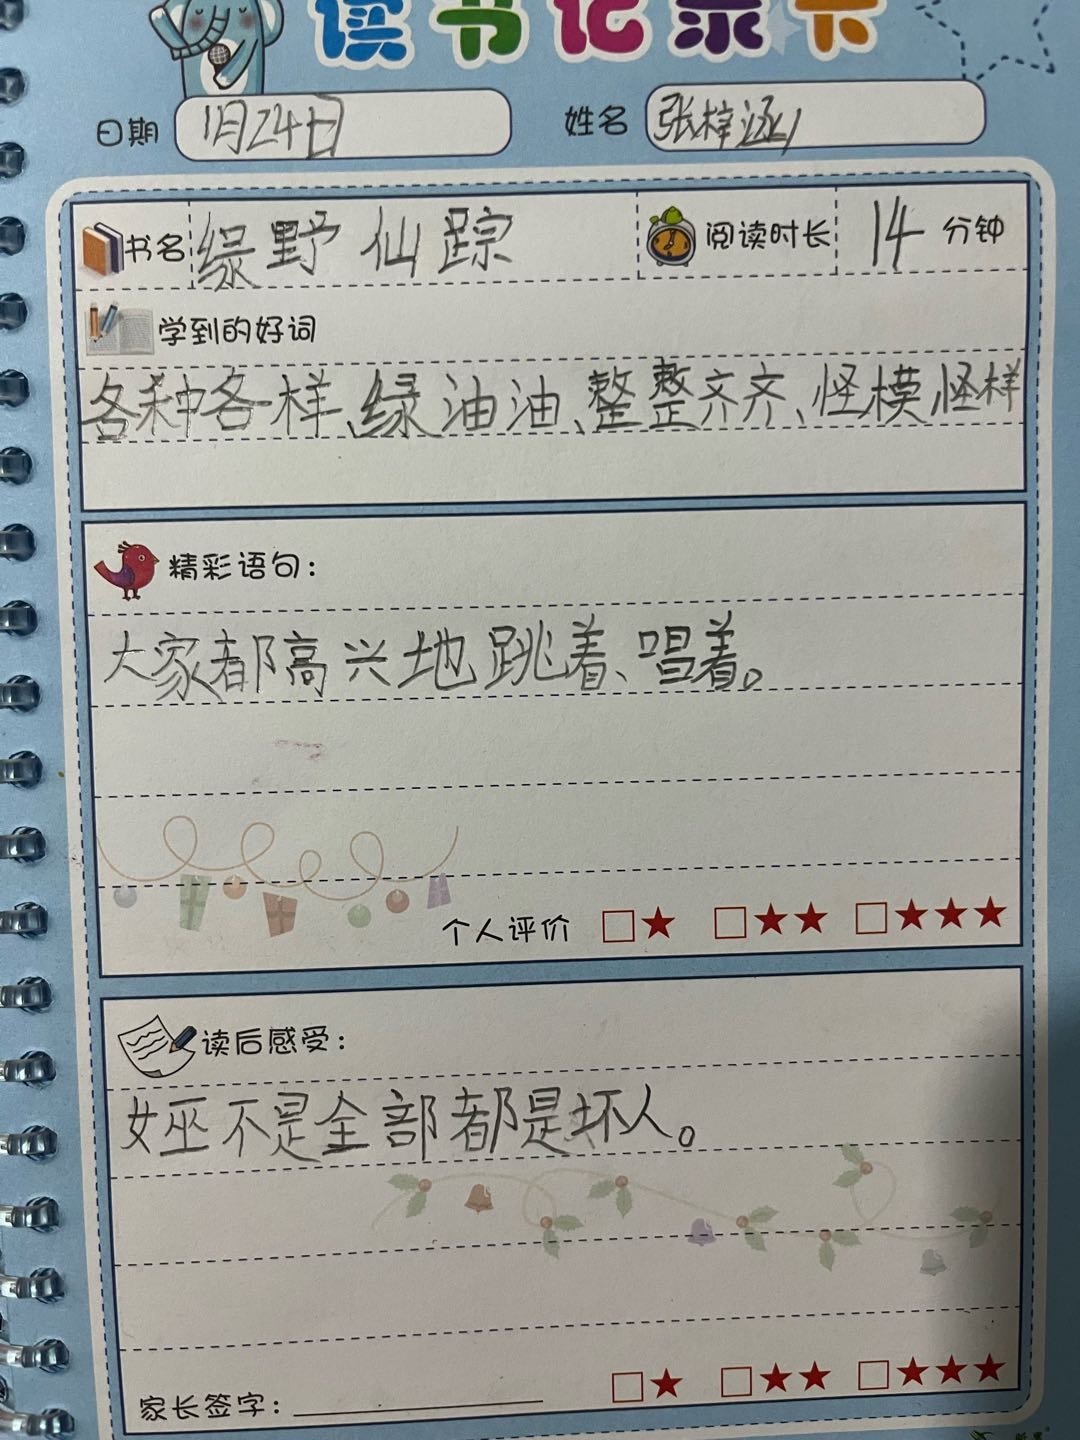 读书记录卡
日期 1月24日 姓名 张梓涵
书名 绿野仙踪 阅读时长 14 分钟
学到的好词
各种各样、绿油油、整整齐齐、怪模怪样
精彩语句:
大家都高兴地跳着、唱着。
个人评价 □★ □★★ □★★★
读后感受:
女巫不是全部都是坏人。
□★ □★★ □★★★
家长签字: